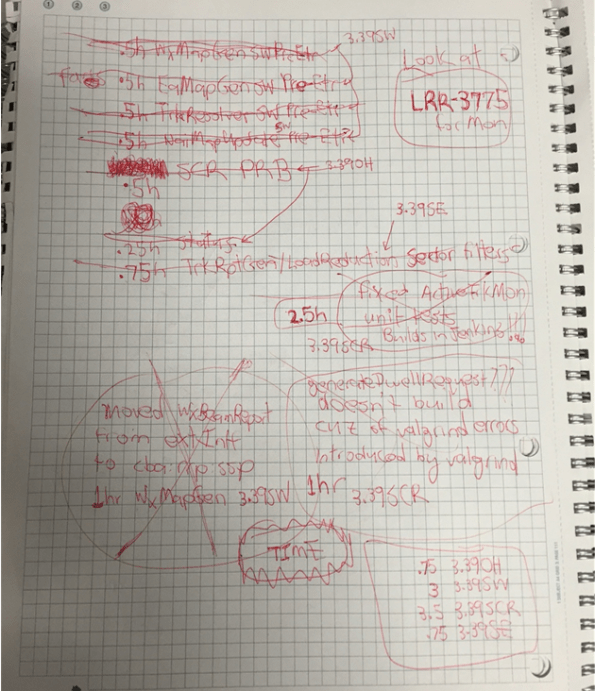 3.39SW
.5h WxMapGen SW Pre-ETR
.5h EqMapGen SW Pre-ETR
.5h TrkResolver SW Pre-ETR
.5h NavMapUpdate SW Pre-ETR
Look at
LRR-3775
for Mon
SCR PRB 3.39OH
.5h
3.39SE
.25h Status
.75h TrkRptGen/LoadReduction Sector Filters
2.5h
fixed ActiveTrkMon
unit tests
Builds in Jenkins!!!
3.39SCR
moved WxBeamReport
from extIntf
to
1hr WxMapGen 3.39SW
generateDwellRequest???
doesn't build
cuz of valgrind errors
introduced by valgrind
1hr 3.39SCR
TIME
.75 3.39OH
3 3.39SW
3.5 3.39SCR
.75 3.39SE